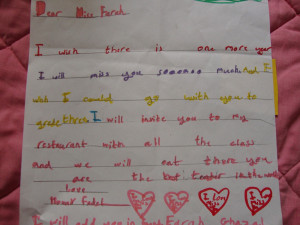 Dear Miss Farah
I wish there is one more year
I will miss you soooooo much. And I
wish I could go with you to
grade three. I will invite you to my
restaurant with all the class
And we will eat there you
are the best teacher in the world
Love
Fadel
I Love Miss
I will add you in
Farah